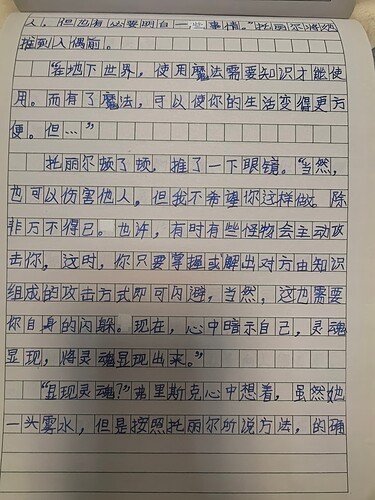 人，但也有必要明白一些事情。”托丽尔将她
推到人偶前。
“在地下世界，使用魔法需要知识才能使
用。而有了魔法，可以使你的生活变得更方
便。但…”
托丽尔顿了顿，推了一下眼镜。“当然，
也可以伤害他人，但我不希望你这样做。除
非万不得已。也许，有时有些怪物会主动攻
击你，这时，你只要掌握或解出对方由知识
组成的攻击方式即可闪避，当然，这也需要
你自身的闪躲。现在，心中暗示自己，灵魂
显现，将灵魂显现出来。”
“显现灵魂？”弗里斯克心中想着，虽然她
一头雾水，但是按照托丽尔所说方法，的确